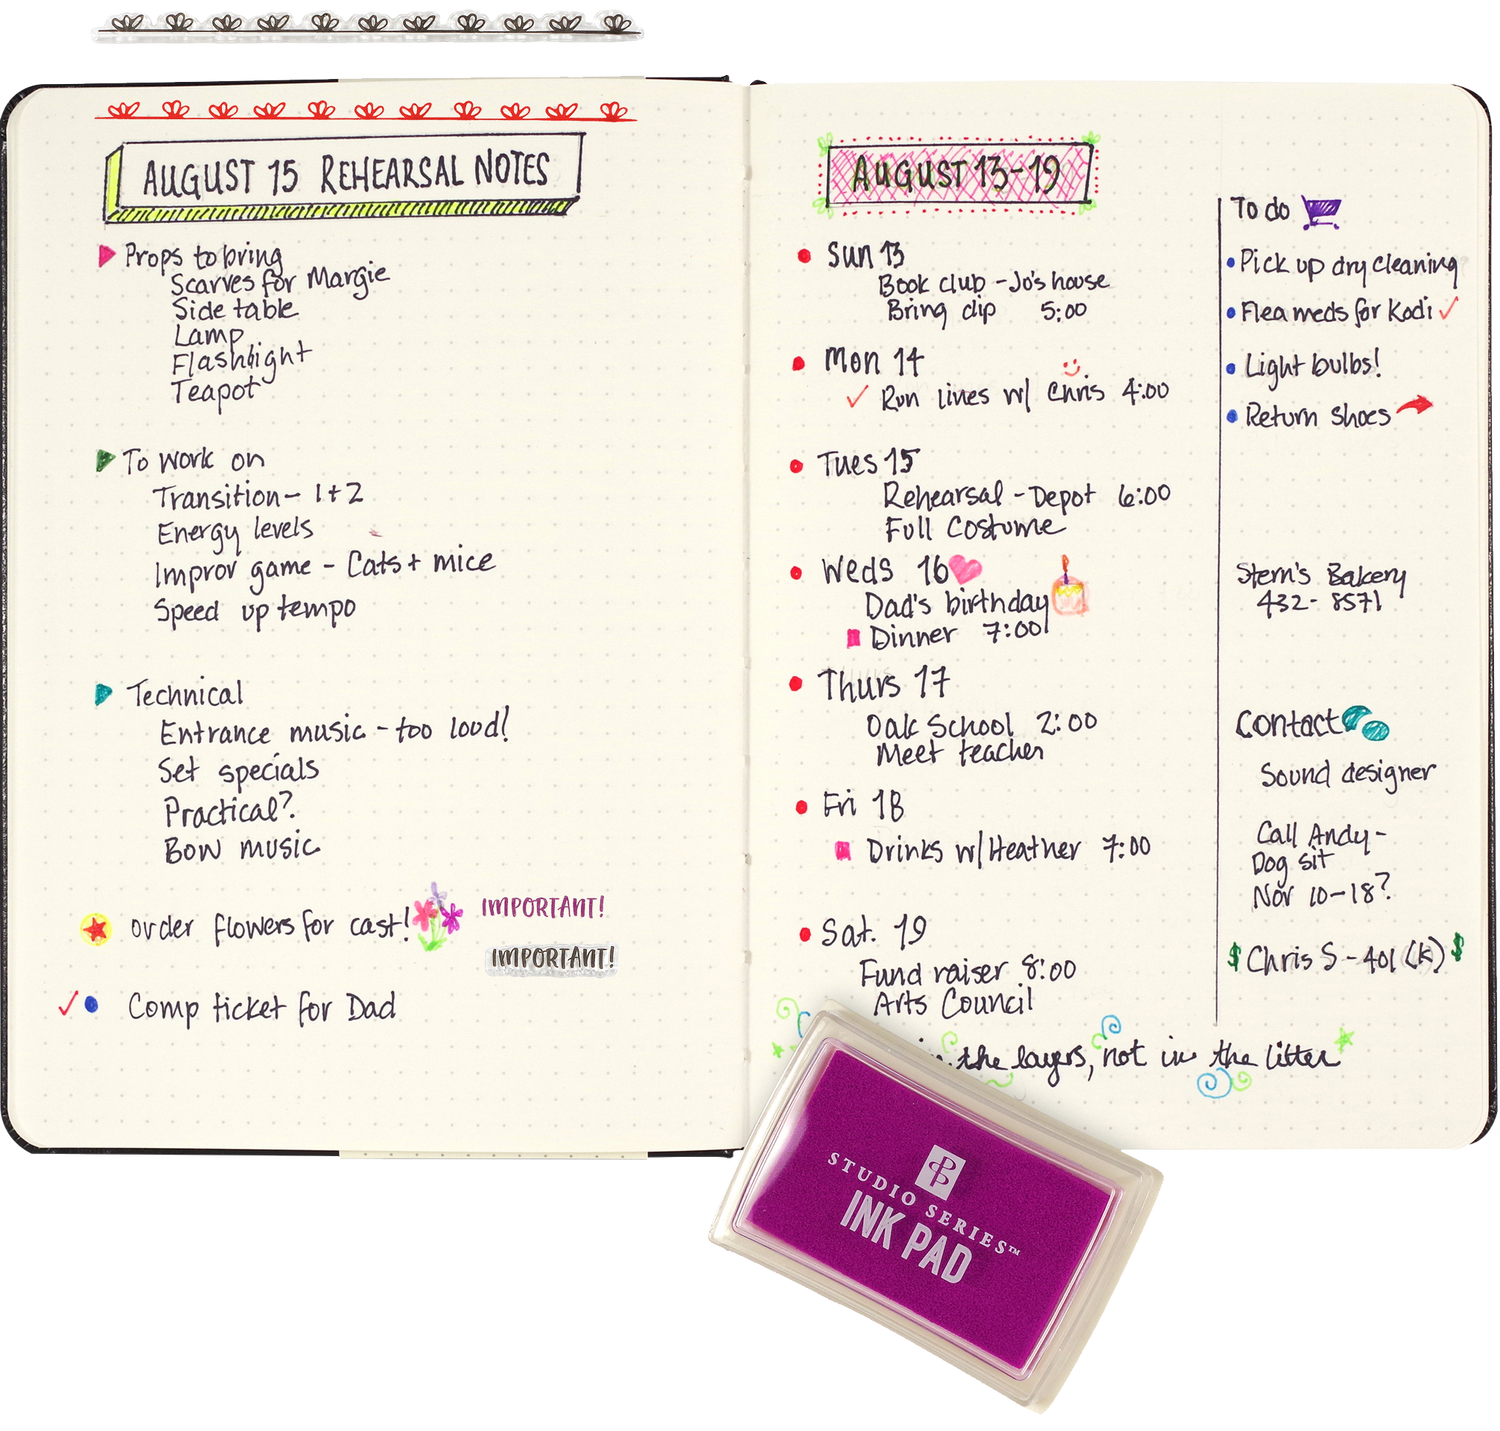 AUGUST 15 REHEARSAL NOTES
Props to bring
Scarves for Margie
Side table
Lamp
Flashlight
Teapot
To work on
Transition - 1+2
Energy levels
Improv game - Cats + mice
Speed up tempo
Technical
Entrance music - too loud!
Set specials
Practical?
Bow music
order flowers for cast!
IMPORTANT!
IMPORTANT!
Comp ticket for Dad
AUGUST 13-19
Sun 13
Book club - Jo's house
Bring dip 5:00
Mon 14
Run lines w/ Chris 4:00
Tues 15
Rehearsal - Depot 6:00
Full Costume
Weds 16
Dad's birthday
Dinner 7:00
Thurs 17
Oak School 2:00
Meet teacher
Fri 18
Drinks w/ Heather 7:00
Sat. 19
Fund raiser 8:00
Arts Council
in the layers, not in the litter
To do
Pick up dry cleaning
Flea meds for Kodi
Light bulbs!
Return shoes
Stern's Bakery
432-8571
Contact
Sound designer
Call Andy -
Dog sit
Nov 10-18?
$ Chris S - 401(K) $
STUDIO SERIES™
INK PAD